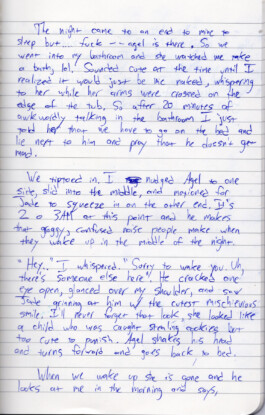 The night came to an end to mine to
sleep but... fuck -- Agel is there. So we
went into my bathroom and she watched me take
a bath, lol. Sounded cute at the time until I
realized it would just be me naked, whispering
to her while her arms were crossed on the
edge of the tub. So after 20 minutes of
awkwardly talking in the bathroom I just
told her that we have to go on the bed and
lie next to him and pray that he doesn't get
mad.
We tiptoed in, I nudged Agel to one
side, slid into the middle, and motioned for
Jade to squeeze in on the other end. It's
2 or 3AM at this point and he makes
that groggy, confused noise people make when
they wake up in the middle of the night.
"Hey.." I whispered. "Sorry to wake you. Uh,
there's someone else here". He cracked one
eye open, glanced over my shoulder, and saw
Jade grinning at him w/ the cutest mischievous
smile. I'll never forget that look, she looked like
a child who was caught stealing cookies but
too cute to punish. Agel shakes his head
and turns forward and goes back to bed.
When we wake up she is gone and he
looks at me in the morning and says,